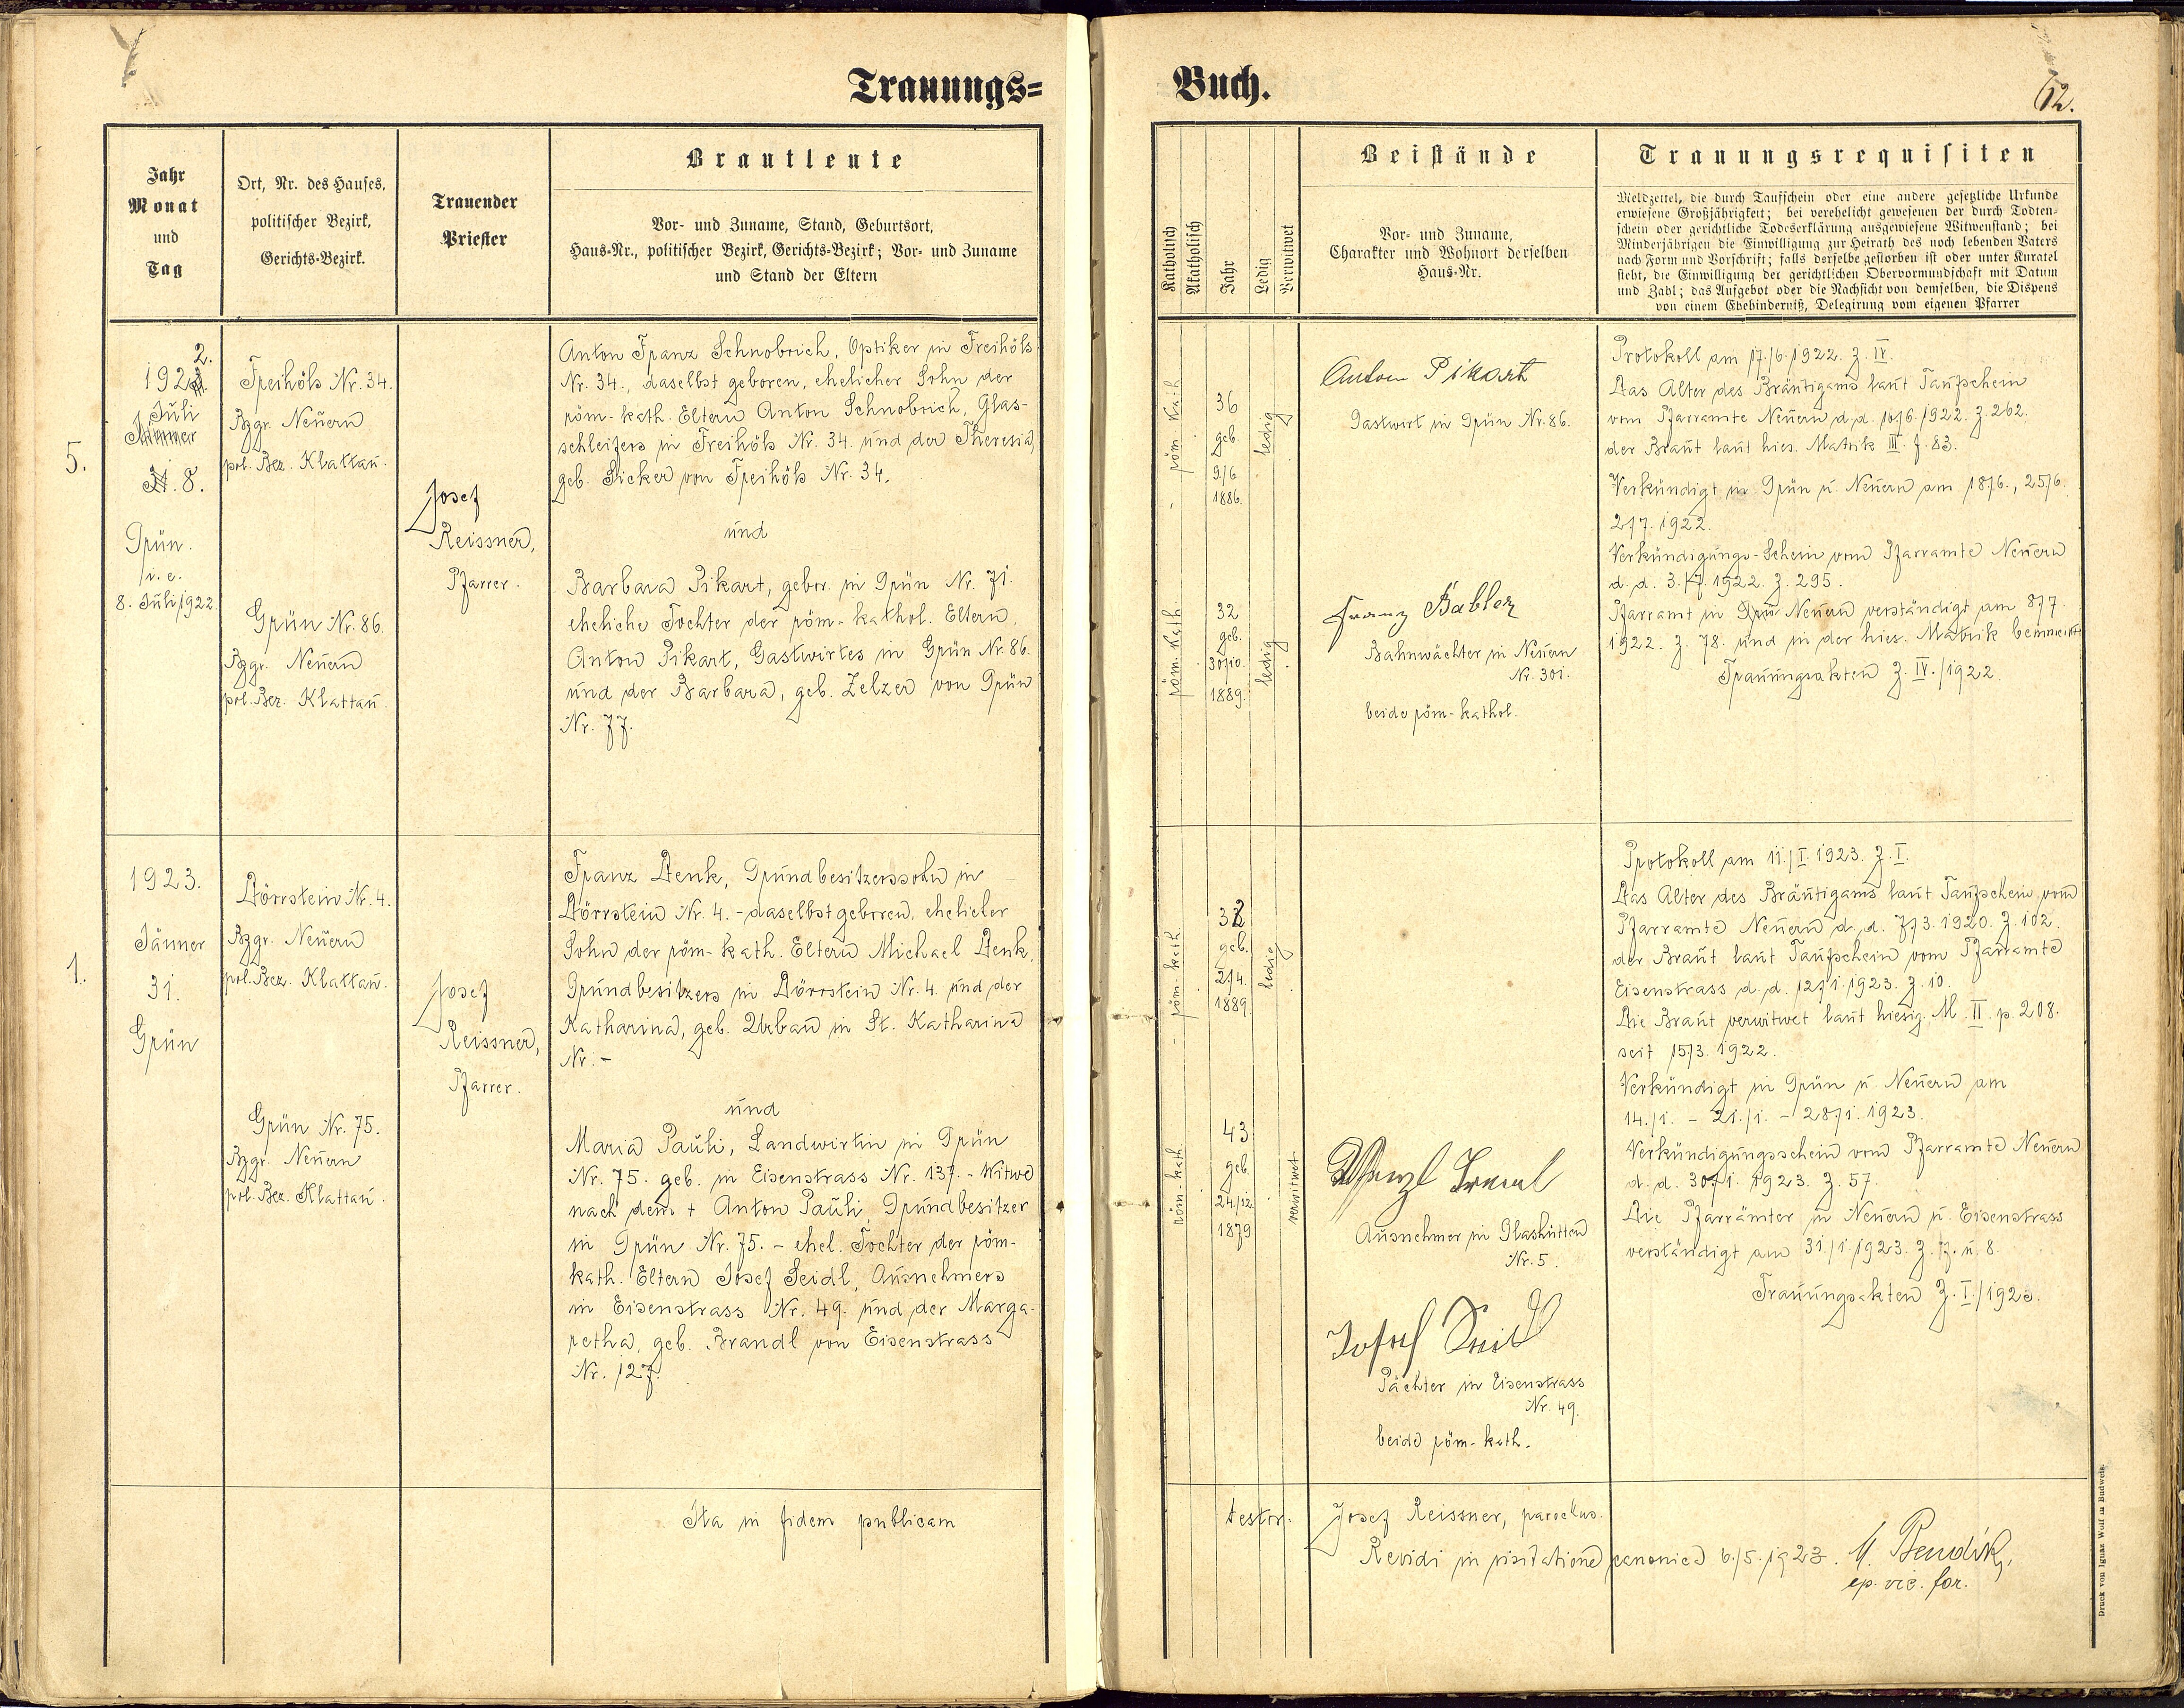 Trauungs=
Jahr
Monat
und
Tag
Ort, Nr. des Hauses,
politischer Bezirk,
Gerichts=Bezirk.
Trauender
Priester
Brautleute
Vor- und Zuname, Stand, Geburtsort,
Haus=Nr., politischer Bezirk, Gerichts=Bezirk; Vor- und Zuname
und Stand der Eltern
5.
2.
192
Juli
8.
Grün.
i. e.
8. Juli 1922.
Freihöls Nr. 34.
Bzgr. Neuern
pol. Bez. Klattau.
Grün Nr. 86.
Bzgr. Neuern
pol. Bez. Klattau.
Josef
Reissner,
Pfarrer.
Anton Franz Schnobrich, Optiker in Freihöls
Nr. 34., daselbst geboren, ehelicher Sohn der
röm-kath. Eltern Anton Schnobrich, Glas-
schleifers in Freihöls Nr. 34 und der Theresia,
geb. Sicker von Freihöls Nr. 34.
und
Barbara Pikart, gebor. in Grün Nr. 71.
eheliche Tochter der röm-kathol. Eltern,
Anton Pikart, Gastwirtes in Grün Nr. 86.
und der Barbara, geb. Zelzer von Grün
Nr. 77.
1.
1923.
Jänner
31.
Grün
Dörrstein Nr. 4.
Bzgr. Neuern
pol. Bez. Klattau.
Grün Nr. 75.
Bzgr. Neuern
pol. Bez. Klattau.
Josef
Reissner,
Pfarrer.
Franz Denk, Grundbesitzerssohn in
Dörrstein Nr. 4. - daselbst geboren, ehelicher
Sohn der röm-kath. Eltern Michael Denk,
Grundbesitzers in Dörrstein Nr. 4. und der
Katharina, geb. Urban in St. Katharina
Nr. -
und
Maria Pauli, Landwirtin in Grün
Nr. 75. geb. in Eisenstrass Nr. 137. - Witwe
nach dem + Anton Pauli, Grundbesitzer
in Grün Nr. 75. - ehel. Tochter der röm-
kath. Eltern Josef Seidl, Ausnehmers
in Eisenstrass Nr. 49. und der Marga-
retha, geb. Brandl von Eisenstrass
Nr. 127.
Ita in fidem publicam
Buch.
62.
Katholisch
Akatholisch
Jahr
Ledig
Verwitwet
Beistände
Vor- und Zuname,
Charakter und Wohnort derselben
Haus=Nr.
Trauungsrequisiten
Meldzettel, die durch Taufschein oder eine andere gesetzliche Urkunde
erwiesene Großjährigkeit; bei verehelicht gewesenen der durch Todten-
schein oder gerichtliche Todeserklärung ausgewiesene Witwenstand; bei
Minderjährigen die Einwilligung zur Heirath des noch lebenden Vaters
nach Form und Vorschrift; falls derselbe gestorben ist oder unter Kuratel
steht, die Einwilligung der gerichtlichen Obervormundschaft mit Datum
und Zahl; das Aufgebot oder die Nachsicht von demselben, die Dispens
von einem Ehehinderniß, Delegirung vom eigenen Pfarrer
röm-kath.
36
geb.
9./6
1886.
ledig
röm-kath.
32
geb.
30./10.
1889.
ledig
Anton Pikart
Gastwirt in Grün Nr. 86.
Franz Babler
Bahnwächter in Neuern
Nr. 301.
beide röm-kathol.
Protokoll am 17./6. 1922. Z. IV.
Das Alter des Bräutigams laut Taufschein
vom Pfarramte Neuern d. d. 10./6. 1922. Z. 262.
der Braut laut hies. Matrik III f. 83.
Verkündigt in Grün u. Neuern am 18./6., 25./6.
2./7. 1922.
Verkündigungs-Schein vom Pfarramte Neuern
d. d. 3./7. 1922. Z. 295.
Pfarramt in Neuern verständigt am 8./7.
1922. Z. 78. und in der hies. Matrik bemerkt
Trauungsakten Z. IV./1922.
röm-kath.
geb.
2./4.
1889.
ledig
röm-kath.
43
geb.
24./12.
1879
verwitwet
Wenzl
Ausnehmer in Glashütten
Nr. 5.
Josef
Pächter in Eisenstrass
Nr. 49.
beide röm-kath.
Protokoll am 11./I. 1923. Z. I.
Das Alter des Bräutigams laut Taufschein vom
Pfarramte Neuern d. d. 7./3. 1920. Z. 102.
der Braut laut Taufschein vom Pfarramte
Eisenstrass d. d. 12./1. 1923. Z. 10.
Die Braut verwitwet laut hiesig. M. II. p. 208.
seit 15./3. 1922.
Verkündigt in Grün u. Neuern am
14./1. - 21./1. - 28./1. 1923.
Verkündigungsschein vom Pfarramte Neuern
d. d. 30./1. 1923. Z. 57.
Die Pfarrämter in Neuern u. Eisenstrass
verständigt am 31./1. 1923. Z. 7. u. 8.
Trauungsakten Z. I./1923.
testor. Josef Reissner, parochus.
Revidi in visitatione canonica 6./5. 1923. M. Bendik,
ep. vic. for.
Druck von Ignaz Wolf in Budweis.